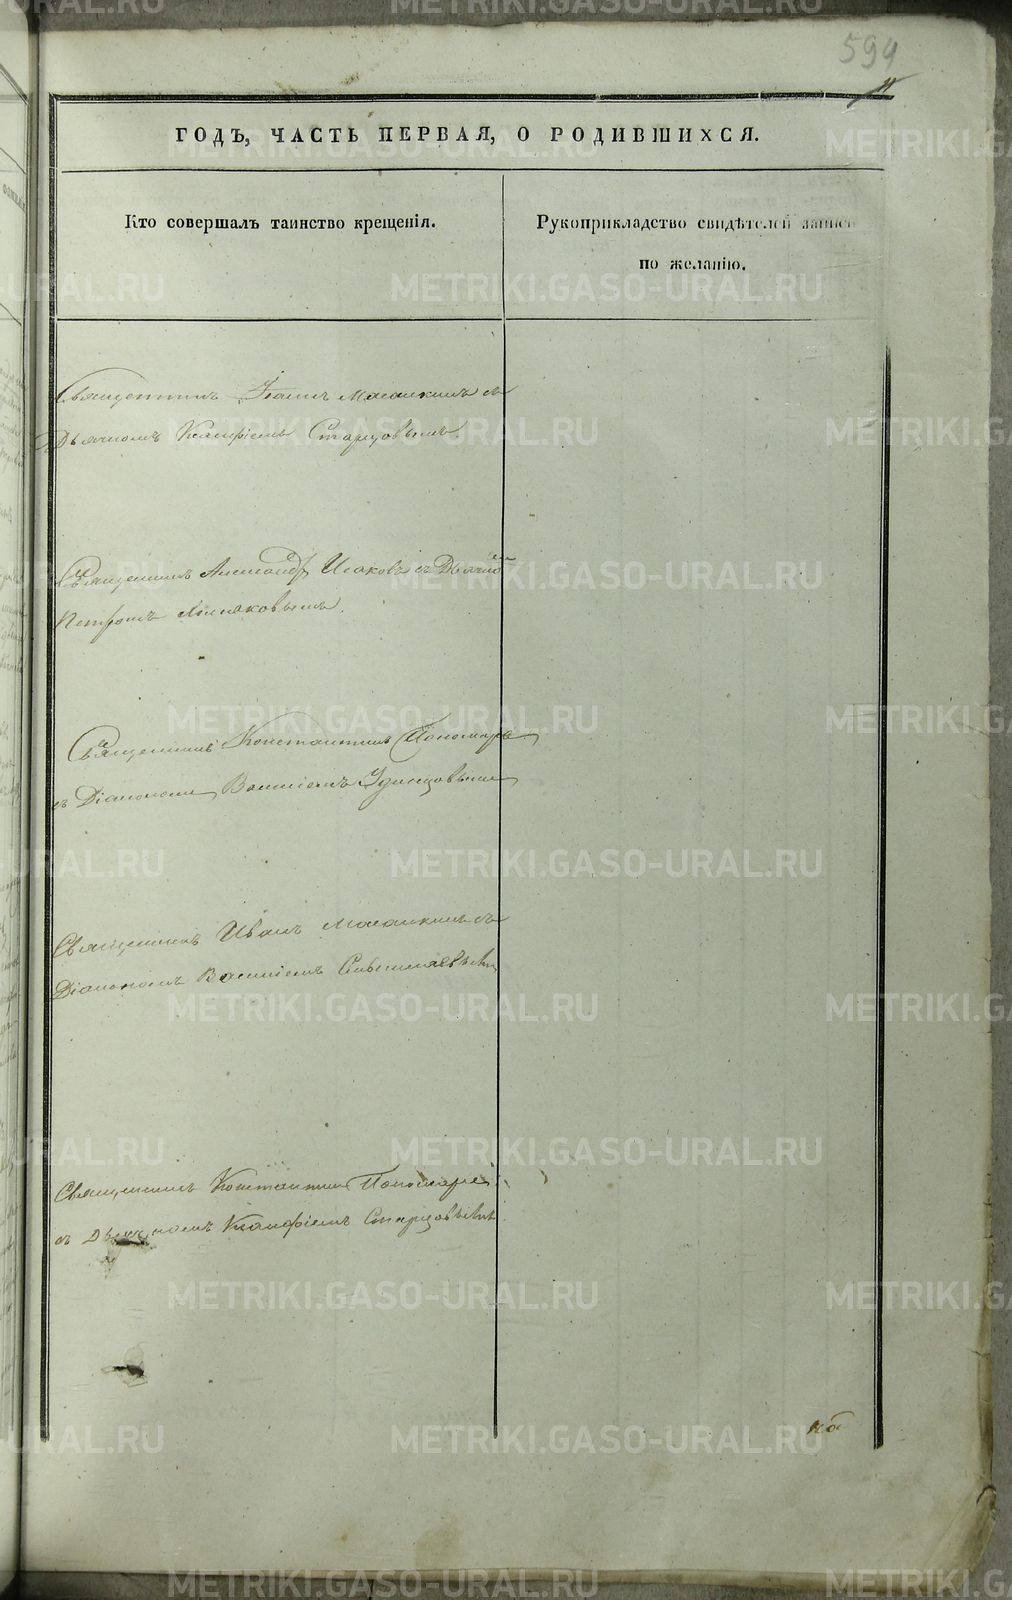 594
11
ГОДЪ, ЧАСТЬ ПЕРВАЯ, О РОДИВШИХСЯ.
Кто совершалъ таинство крещенія.
Рукоприкладство свидѣтелей записи
по желанію.
Священникъ Іоаннъ съ
Дьячкомъ Старцовымъ
Священникъ Александръ Исаковъ съ Дьячкомъ
Петромъ
Священникъ Константинъ Пономаревъ
съ Діакономъ Василіемъ Удинцовымъ
Священникъ Иванъ съ
Діакономъ Василіемъ
Священникъ Константинъ Пономаревъ
съ Дьячкомъ Старцовымъ
METRIKI.GASO-URAL.RU